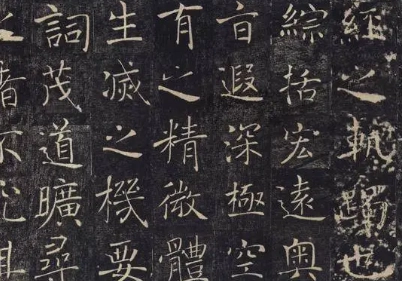 經之軌躅也
綜括宏遠奥
旨遐深極空
有之精微體
生滅之機要
詞茂道曠尋
之者不究其